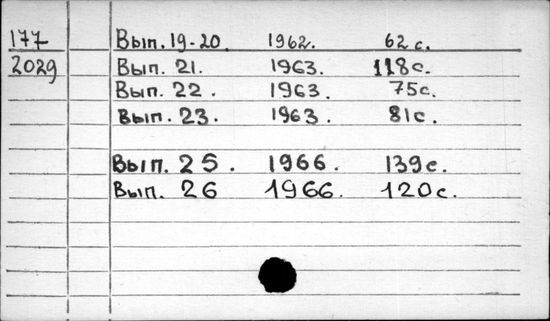 177 Вып. 19-20. 1962. 62 с.
2029 Вып. 21. 1963. 118с.
Вып. 22. 1963. 75с.
Вып. 23. 1963. 81с.
Вып. 25. 1966. 139с.
Вып. 26 1966. 120с.